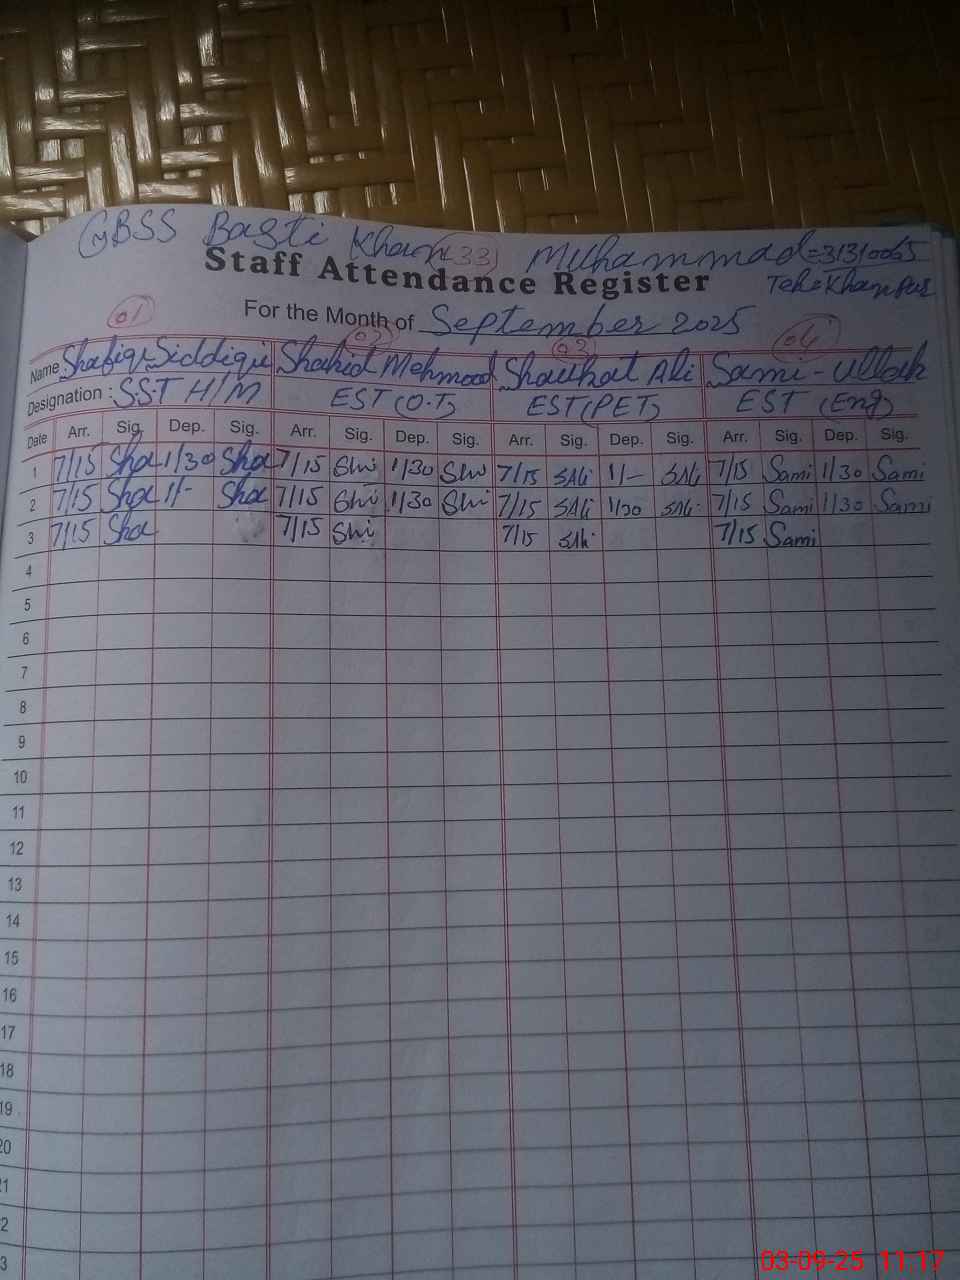 GBSS Basti Khan (33) Muhammad = 31310065
Staff Attendance Register
Teh: Khanpur
For the Month of September 2025
01 02 03 04
Name Shafiq Siddiqui Shahid Mehmood Shaukat Ali Sami-Ullah
Designation : S.S.T H/M EST (O.T) EST (PET) EST (Eng)
Date Arr. Sig. Dep. Sig. Arr. Sig. Dep. Sig. Arr. Sig. Dep. Sig. Arr. Sig. Dep. Sig.
1 7/15 Sha 1/30 Sha 7/15 Shi 1/30 Shi 7/15 SAli 1/- SAli 7/15 Sami 1/30 Sami
2 7/15 Sha 1/- Sha 7/15 Shi 1/30 Shi 7/15 SAli 1/30 SAli 7/15 Sami 1/30 Sami
3 7/15 Sha 7/15 Shi 7/15 SAli 7/15 Sami
4
5
6
7
8
9
10
11
12
13
14
15
16
17
18
19
20
21
2
3
03-09-25 11:17